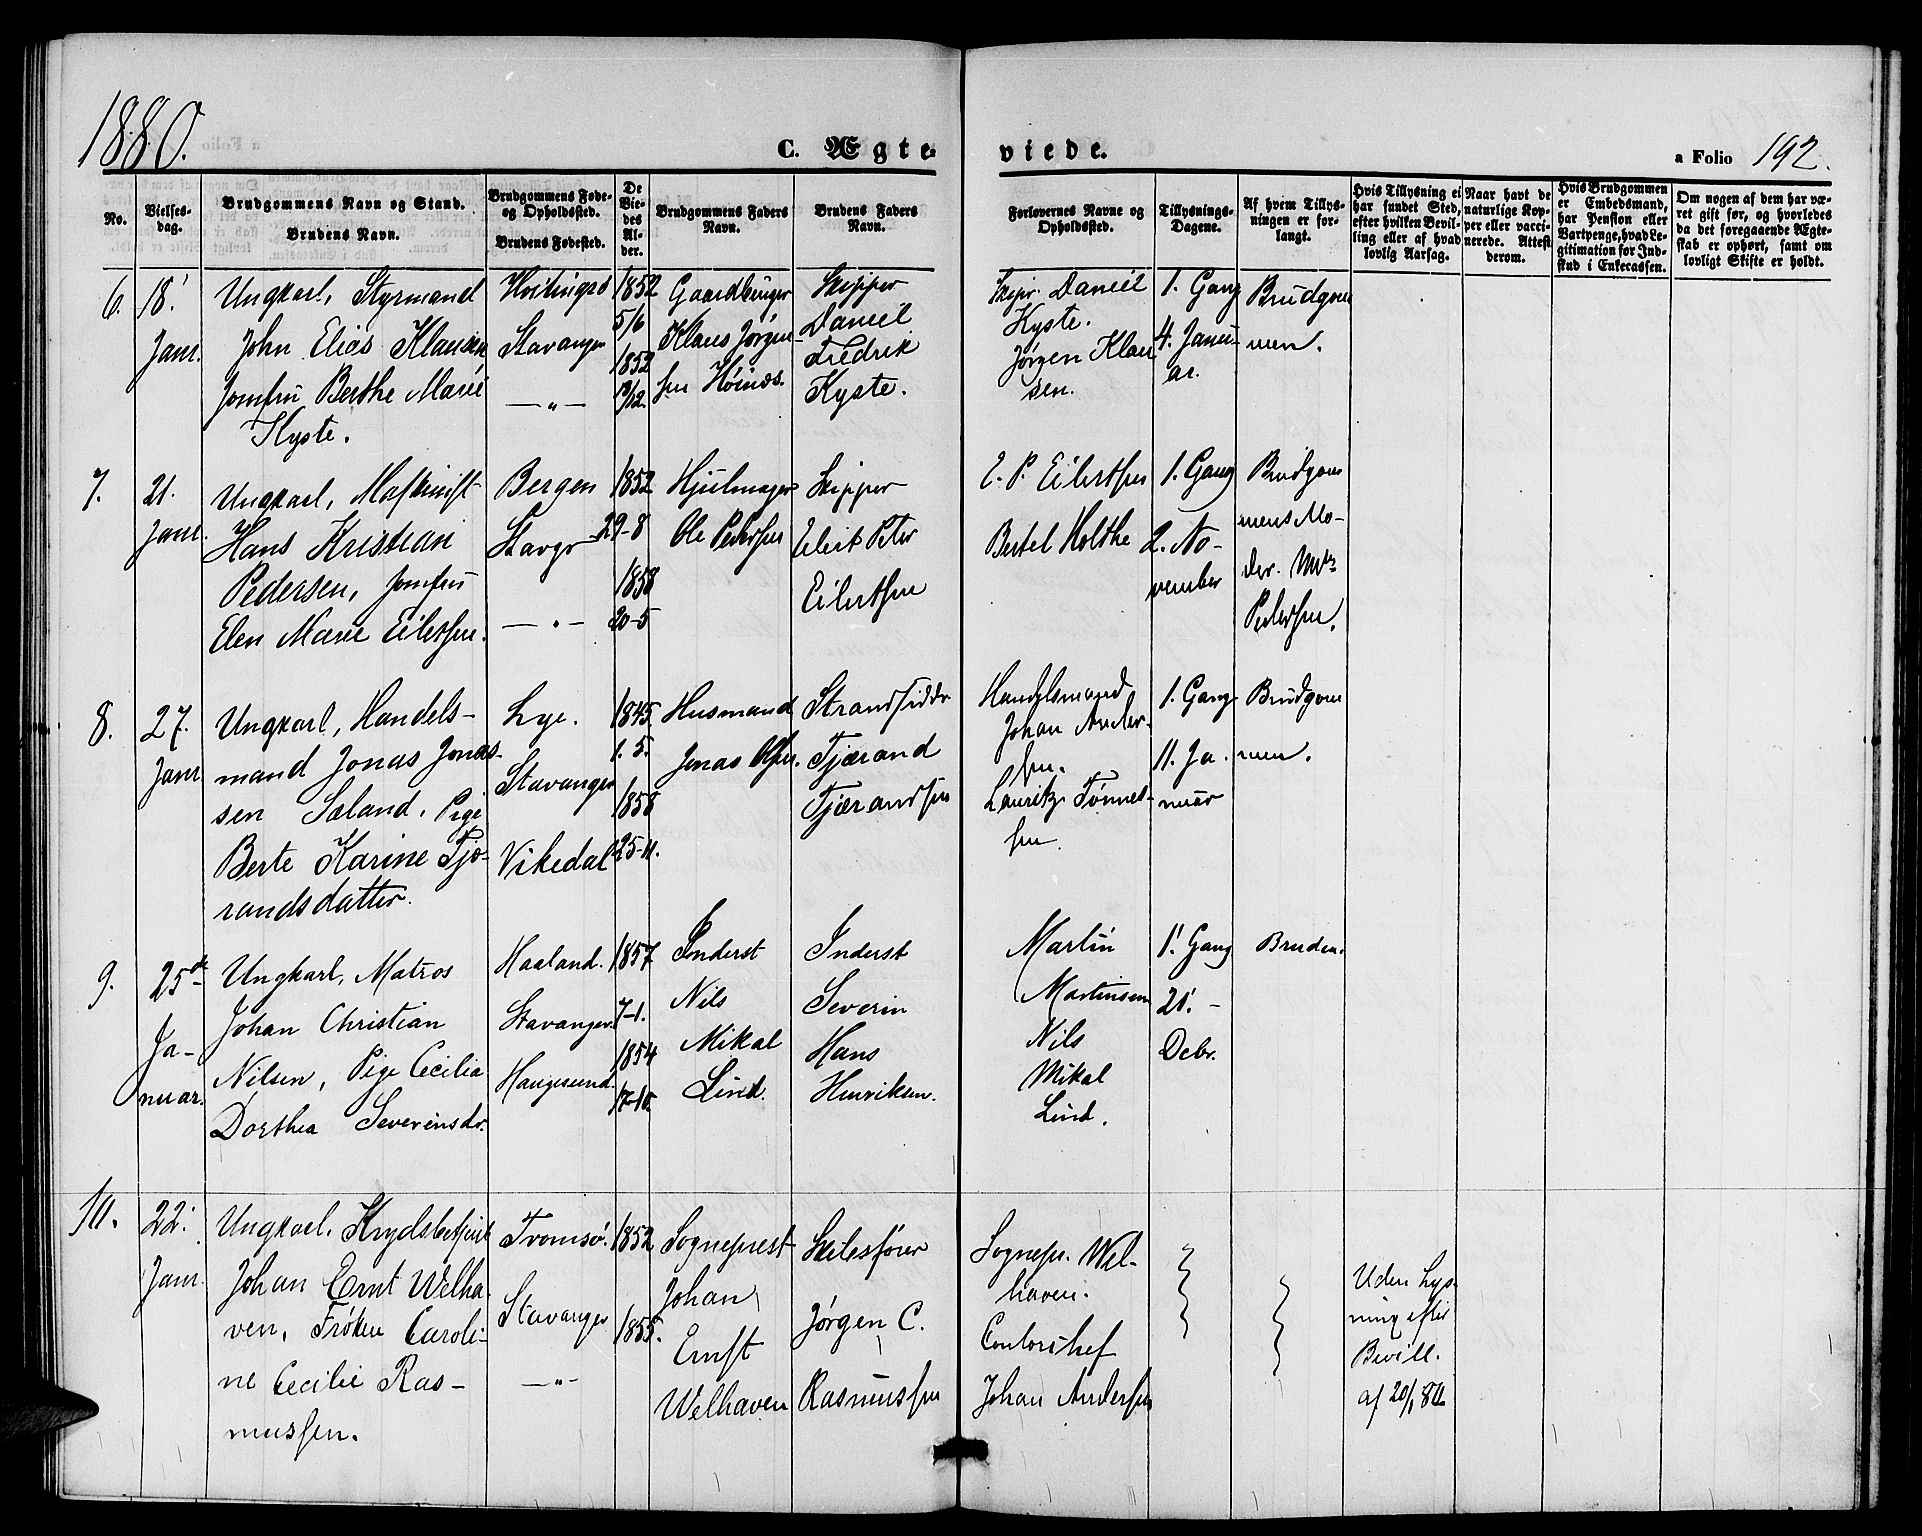 1880.
C. Ægte-
viede.
a Folio 192.
No.
Vielses-
dag.
Brudgommens Navn og Stand.
Brudens Navn.
Brudgommens Føde-
og Opholdssted.
Brudens Fødested.
De
Vie-
des
Al-
der.
Brudgommens Faders
Navn.
Brudens Faders
Navn.
Forlovernes Navne og
Opholdssted.
Tillysnings-
Dagene.
Af hvem Tillys-
ningen er for-
langt.
Hvis Tillysning ei
har fundet Sted,
efter hvilken Bevil-
ling eller af hvad
lovlig Aarsag.
Naar havt de
naturlige Kop-
per eller vacci-
nerede. Attest
derom.
Hvis Brudgommen
er Embedsmand,
har Pension eller
Vartpenge, hvad Le-
gitimation for Ind-
skud i Enkecassen.
Om nogen af dem har væ-
ret gift før, og hvorledes
da det foregaaende Ægte-
skab er ophørt, samt om
lovligt Skifte er holdt.
6.
18.
Janr.
Ungkarl, Styrmand
John Elias Klausen
Jomfru Berthe Marie
Kyste.
Hvitingsø
Stavanger
— " —
1852
5/6
1852
/12.
Gaardbruger
Klaus Jørgen-
sen Høinæs.
Skipper
Daniel
Fredrik
Kyste.
Skipr. Daniel
Kyste.
Jørgen Klau
sen.
1. Gang
4. Janu-
ar.
Brudgom
men.
7.
21.
Janr.
Ungkarl, Maskinist
Hans Kristian
Pedersen, Jomfru
Elen Marie Eilertsen.
Bergen
Stavgr
— " —
1852
29-8
1858
20-5
Hjulmager
Ole Pedersen
Skipper
Eilert Peter
Eilertsen
E. P. Eilertsen
Bertel Holthe
1. Gang
2. No-
vember
Brudgom
mens Mo-
der. Md:
Pedersen.
8.
27.
Janr
Ungkarl, Handels-
mand Jonas Jonas-
sen Sæland. Pige
Berte Karine Tjæ-
randsdatter.
Lye.
Stavanger
Vikedal
1845.
1. 5.
1858
25-11.
Husmand
Jonas Olsen.
Strandsidder
Tjærand
Tjærandsen
Handelsmand
Johan Ander-
sen.
Lauritz Tønnes-
sen.
1. Gang
11. Ja.
nuar
Brudgom
men.
9.
25de
Ja-
nuar.
Ungkarl, Matros
Johan Christian
Nilsen, Pige Cecilia
Dorthea Severinsdr.
Haaland.
Stavanger.
Haugesund.
1857
7-1.
1854
17-10.
Inderst
Nils
Mikal
Lind.
Inderst
Severin
Hans
Henriksen.
Martin
Martinsen
Nils
Mikal
Lind.
1. Gang
21. -
Decbr.
Bruden.
10.
22.
Janr.
Ungkarl, Krydsbetjent
Johan Ernt Welha-
ven, Frøken Caroli-
ne Cecilie Ras-
mussen.
Tromsø.
Stavanger
— " —
1852
1855.
Sogneprest
Johan
Ernst
Welhaven
Skibsfører
Jørgen C.
Rasmussen
Sognepr. Wel-
haven.
Contorchef
Johan Andersen
Uden Lys-
ning efter
Bevill.
af 20/1 80.